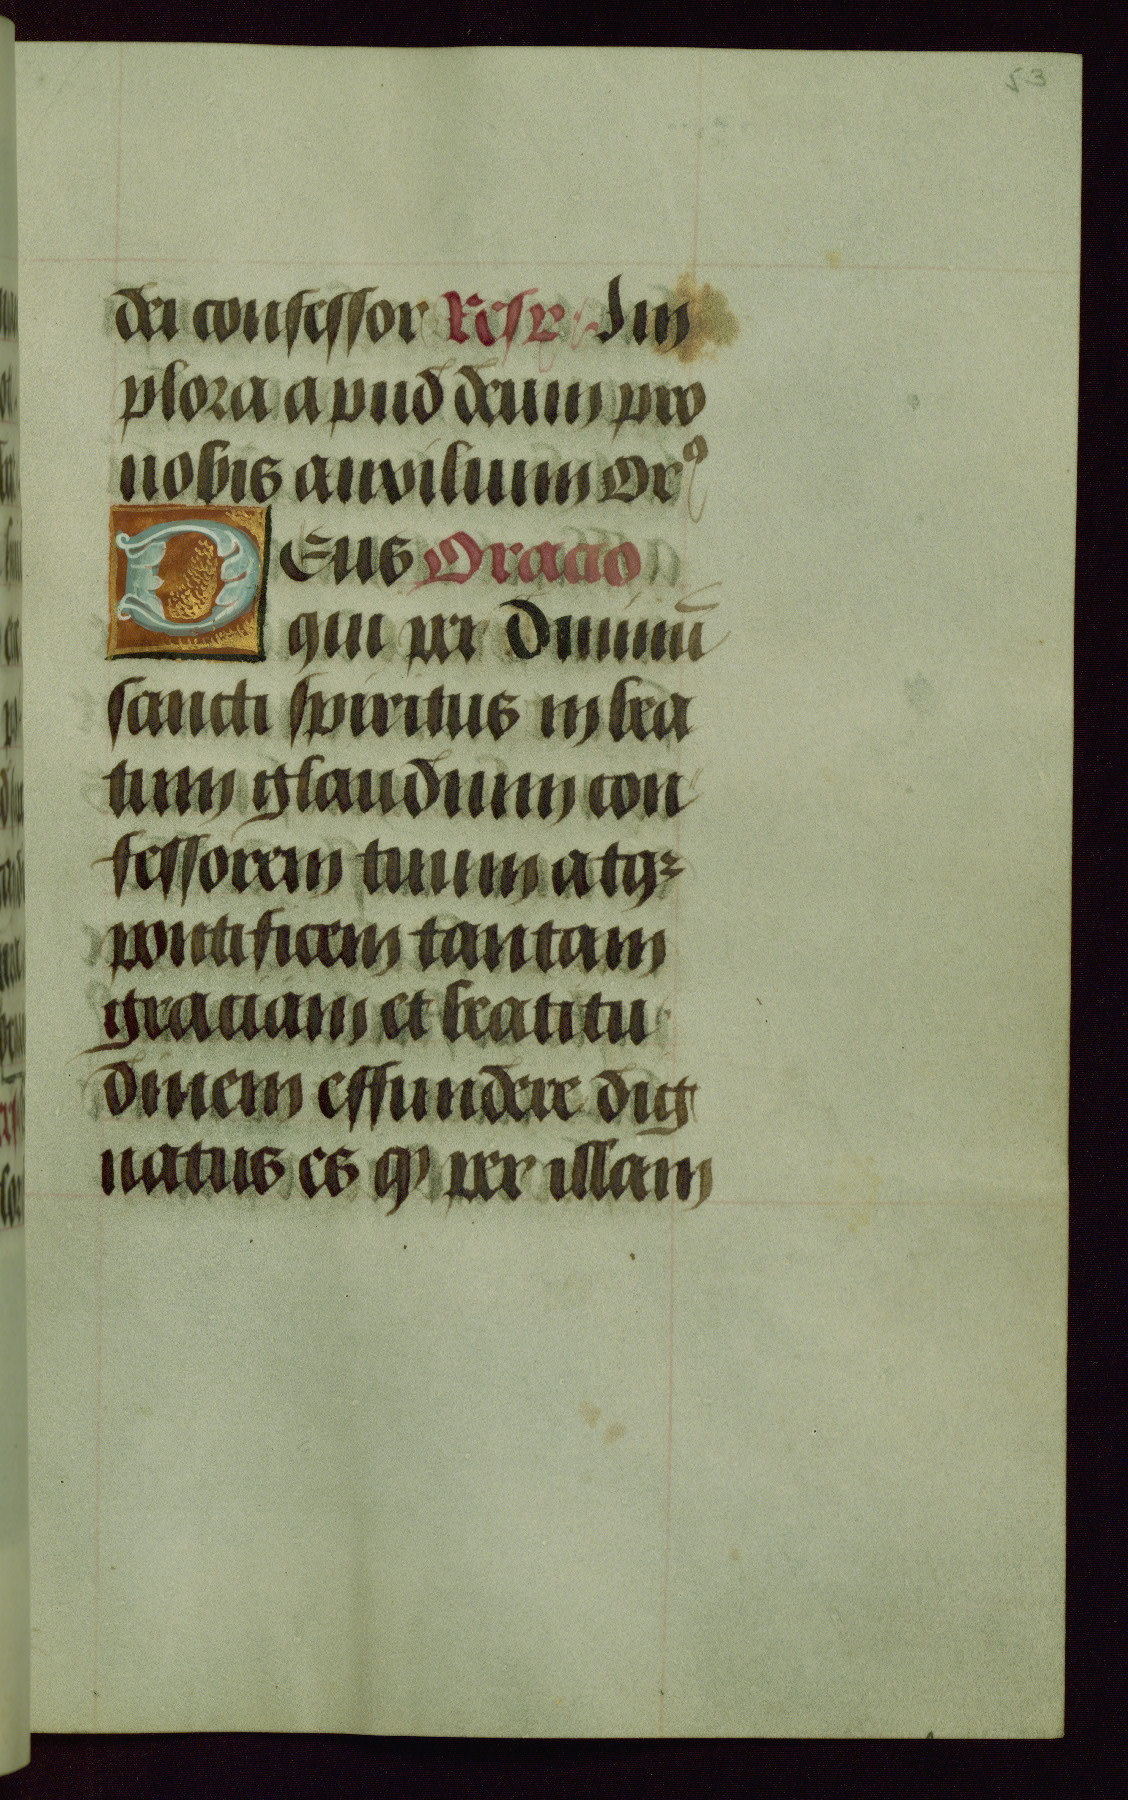 53
dei confessor Resp Im
plora apud deum pro
nobis auxilium Or
DEus Oracio
qui per diuinū
sancti spiritus in bea
tum glaudium con
fessorem tuum atqꝫ
pontificem tantam
graciam et beatitu
dinem effundere dig
natus es qꝫ per illam